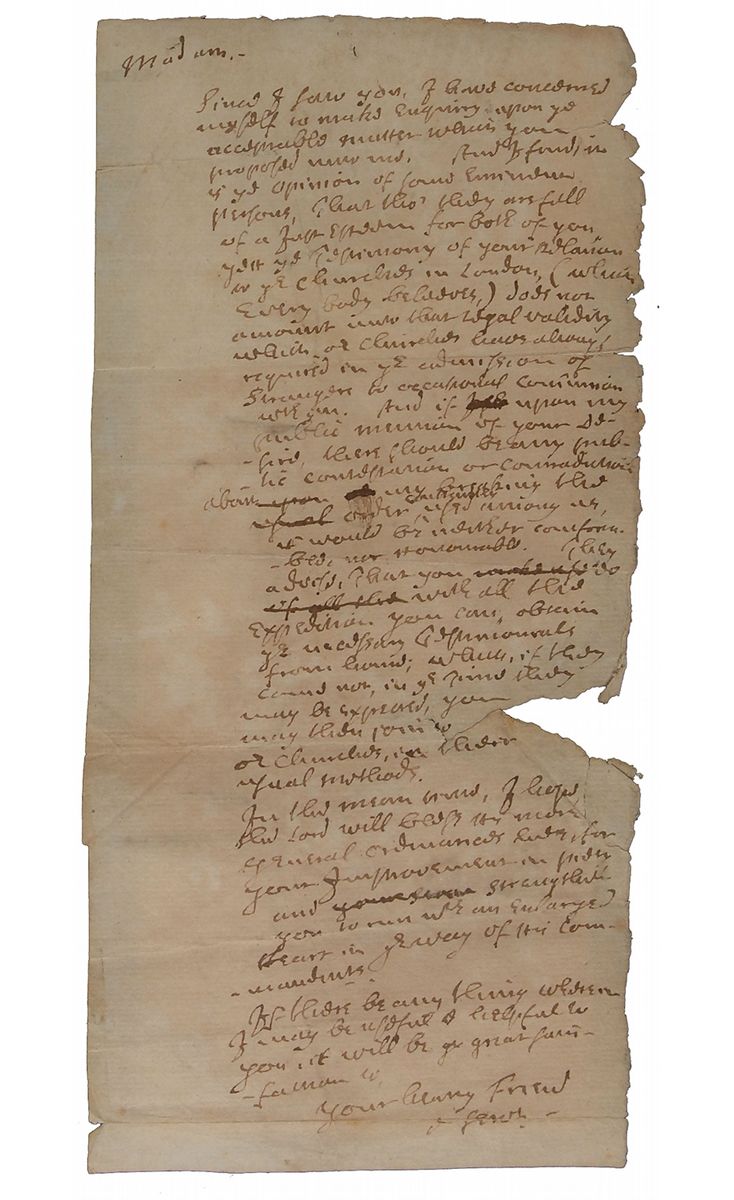 Madam.-
Since I saw you, I have concerned
myself to make Enquiry upon ye
acceptable matter which you
proposed unto me. And I find, it
is ye Opinion of some Eminent
persons, That tho' they are full
of a Just Esteem for both of you
yett ye Testimony of your Relation
to ye Churches in London, (which
Every body beleeves,) does not
amount unto that Legal validity
which or Churches have alwayes
required in ye admission of
Strangers to occasional Comunion
with 'm. And if upon my
public mention of your De-
-sire, there should be any pub-
lic contestation or contradiction
about my breaking the
order, continually used among us,
it would be neither comforta-
-ble, nor Honourable. They
advise, That you do
with all the
Expedition you can, obtain
ye necessary Testimonials
from home; which, if they
come not, in ye Time they
may be expected, you
may then join to
or Churches, in their
usual methods.
In the mean time, I hope
the Lord will bless His more
general ordinances here, for
your Improvement in piety
and Strengthen
you to run wth an Enlarged
Heart in ye way of His Com-
-mandmts.
If there be any thing wherein
I may be useful & helpful to
you, it will be ye great satis-
-faction to,
Your heary Friend
& Servt.-